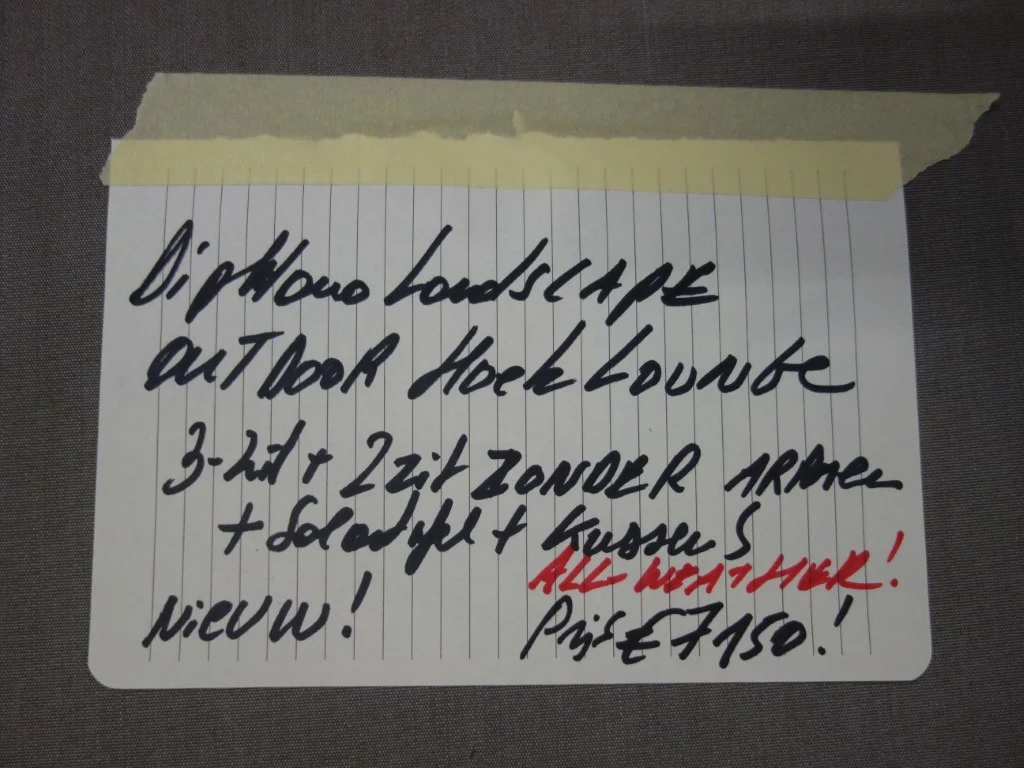 Diphano LandSCAPE
OUTDOOR Hoek LOUNGE
3-zit + 2 zit ZONDER ARMEN
+ Salontafel + KUSSENS
ALL WEATHER!
NIEUW!
Prijs € 7150.!